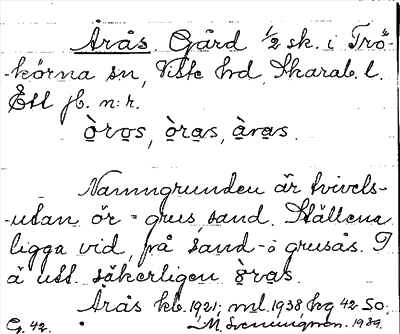 Årås. Gård 1/2 sk. i Trö-
-körna sn, Viste hd. Skarab. l.
Ett jb. n:r.
ò̤ro̤s, ò̤ra̤s, à̤ra̤s.
Namngrunden är tvivels-
-utan ör = grus, sand. Ställena
ligga vid, på sand- o grusås. I
ä utt. säkerligen ò̤ra̤s.
Årås kb. 1921; ml. 1938 hg 42 So.
G. 42. M. Svenungson. 1939.